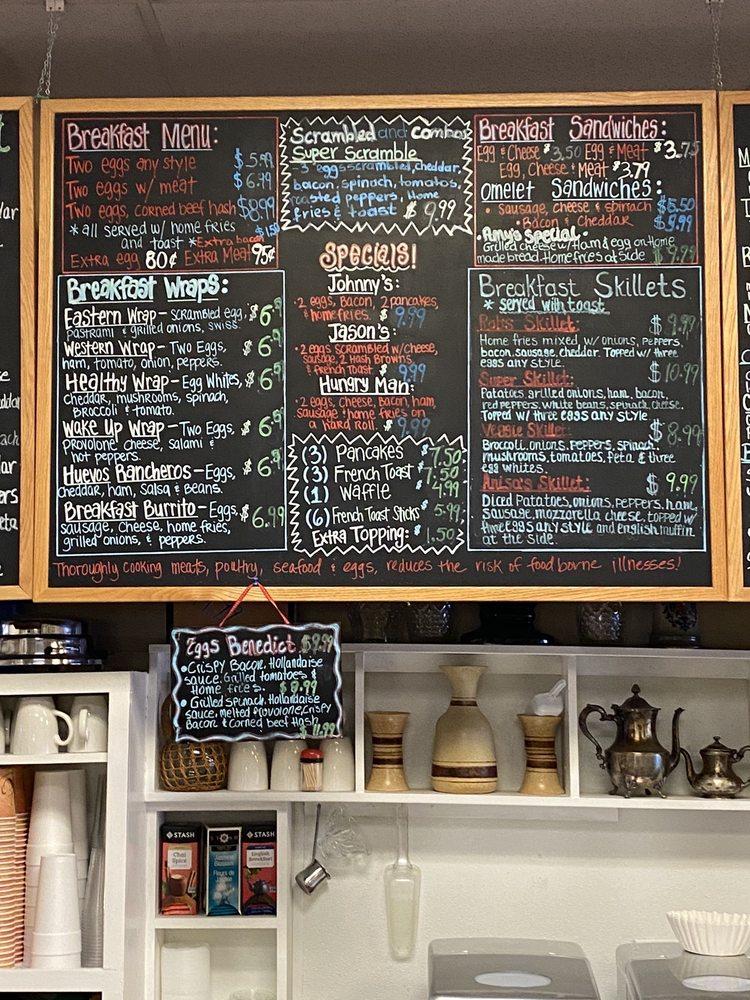 Breakfast Menu:
Two eggs any style $5.99
Two eggs w/ meat $6.99
Two eggs, corned beef hash $8.99
*all served w/ home fries
and toast *Extra bacon $1.50
Extra egg 80¢ Extra Meat 95¢
Breakfast Wraps:
Eastern Wrap - scrambled egg, $6.99
pastrami & grilled onions, swiss.
Western Wrap - Two Eggs, $6.99
ham, tomato, onion, peppers.
Healthy Wrap - Egg Whites, $6.99
cheddar, mushrooms, spinach,
broccoli & tomato.
Wake Up Wrap - Two Eggs, $6.99
provolone cheese, salami &
hot peppers.
Huevos Rancheros - Eggs, $6.99
cheddar, ham, salsa & beans.
Breakfast Burrito - Eggs, $6.99
sausage, cheese, home fries,
grilled onions, & peppers.
Scrambled and combos
Super Scramble
- 3 eggs scrambled, cheddar,
bacon, spinach, tomatos,
roasted peppers, Home
fries & toast $9.99
Specials!
Johnny's:
• 2 eggs, Bacon, 2 pancakes,
& home fries. $9.99
Jason's:
• 2 eggs scrambled w/cheese,
sausage, 2 Hash Browns,
& french toast $9.99
Hungry Man:
• 2 eggs, cheese, bacon, ham,
sausage & home fries on
a hard Roll. $9.99
(3) Pancakes $7.50
(3) French Toast $7.50
(1) Waffle $4.99
(6) French Toast Sticks $5.99
Extra Topping: $1.50
Breakfast Sandwiches:
Egg & Cheese $3.50 Egg & Meat $3.75
Egg, Cheese & Meat $3.79
Omelet Sandwiches:
• sausage, cheese & spinach $5.50
• Bacon & cheddar $5.99
• Amy's Special -
Grilled cheese w/Ham & egg on Home
made bread-Home fries at side $9.99
Breakfast Skillets
* served with toast
Rob's Skillet: $9.99
Home fries mixed w/ onions, peppers,
bacon, sausage, cheddar. Topped w/ three
eggs any style.
Super Skillet: $10.99
Patatos grilled onions, ham, bacon,
red peppers, white beans, spinach, cheese.
Topped w/ three eggs any style.
Veggie Skillet: $8.99
Broccoli, onions, peppers, spinach,
mushrooms, tomatoes, feta & three
egg whites.
Anisa's Skillet: $9.99
Diced Patatoes, onions, peppers, ham,
sausage, mozzarella cheese, topped w/
three eggs any style and english muffin
at the side.
Thoroughly cooking meats, poultry, seafood & eggs, reduces the risk of food borne illnesses!
Eggs Benedict $9.99
• Crispy Bacon, Hollandaise
sauce, Grilled tomatoes &
Home fries. $9.99
• Grilled spinach, Hollandaise
sauce, melted provolone, crispy
Bacon & Corned beef Hash
$11.99
STASH
Chai
Spice
STASH
English
Breakfast